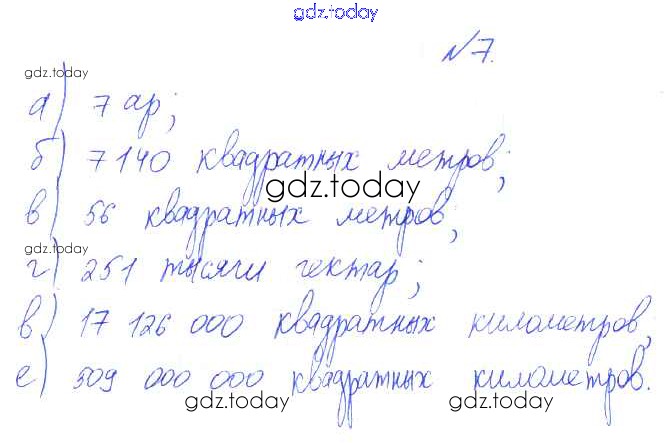 gdz.today
№7.
gdz.today
а) 7 ар;
б) 7140 квадратных метров;
gdz.today
в) 56 квадратных метров;
gdz.today
г) 251 тысячи гектар;
в) 17 126 000 квадратных километров;
е) 509 000 000 квадратных километров.
gdz.today gdz.today